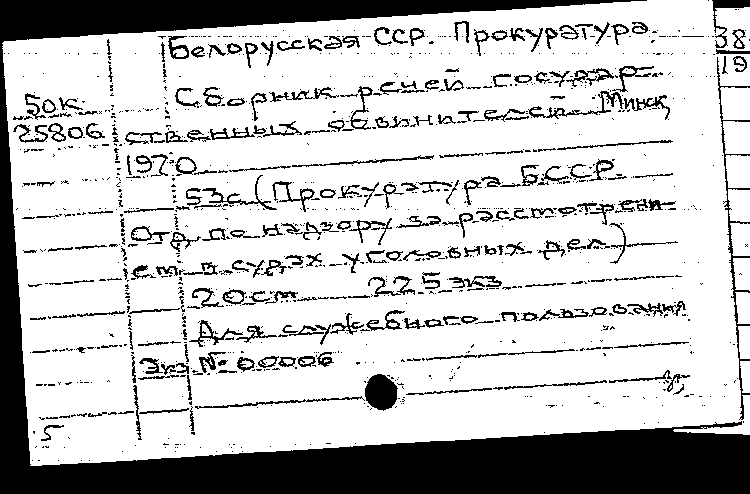 Белорусская ССР. Прокуратура.
50к
25806
Сборник речей государ-
ственных обвинителей. Минск,
1970
53с (Прокуратура БССР.
Отд. по надзору за рассмотрени-
ем в судах уголовных дел)
20см 225экз
Для служебного пользования
Экз № 00006
5
38
19